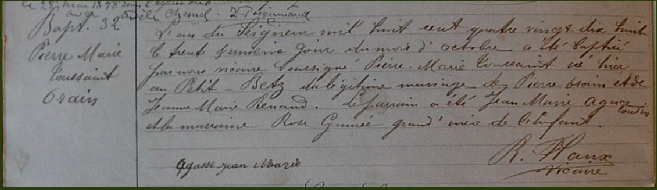 Bapt. 32e
Pierre Marie
Toussaint
Orain
L'an du Seigneur mil huit cent quatre vingt dix huit
le trente unième jour du mois d'octobre a été baptisé
par nous vicaire soussigné Pierre-Marie Toussaint né hier
au Petit-Betz du légitime mariage de Pierre Orain et de
Jeanne Marie Renaud. Le parrain a été Jean Marie Agasse cousin
et la marraine Rose Guinée grand'mère de l'Enfant.
Agasse jean Marie
Vicaire